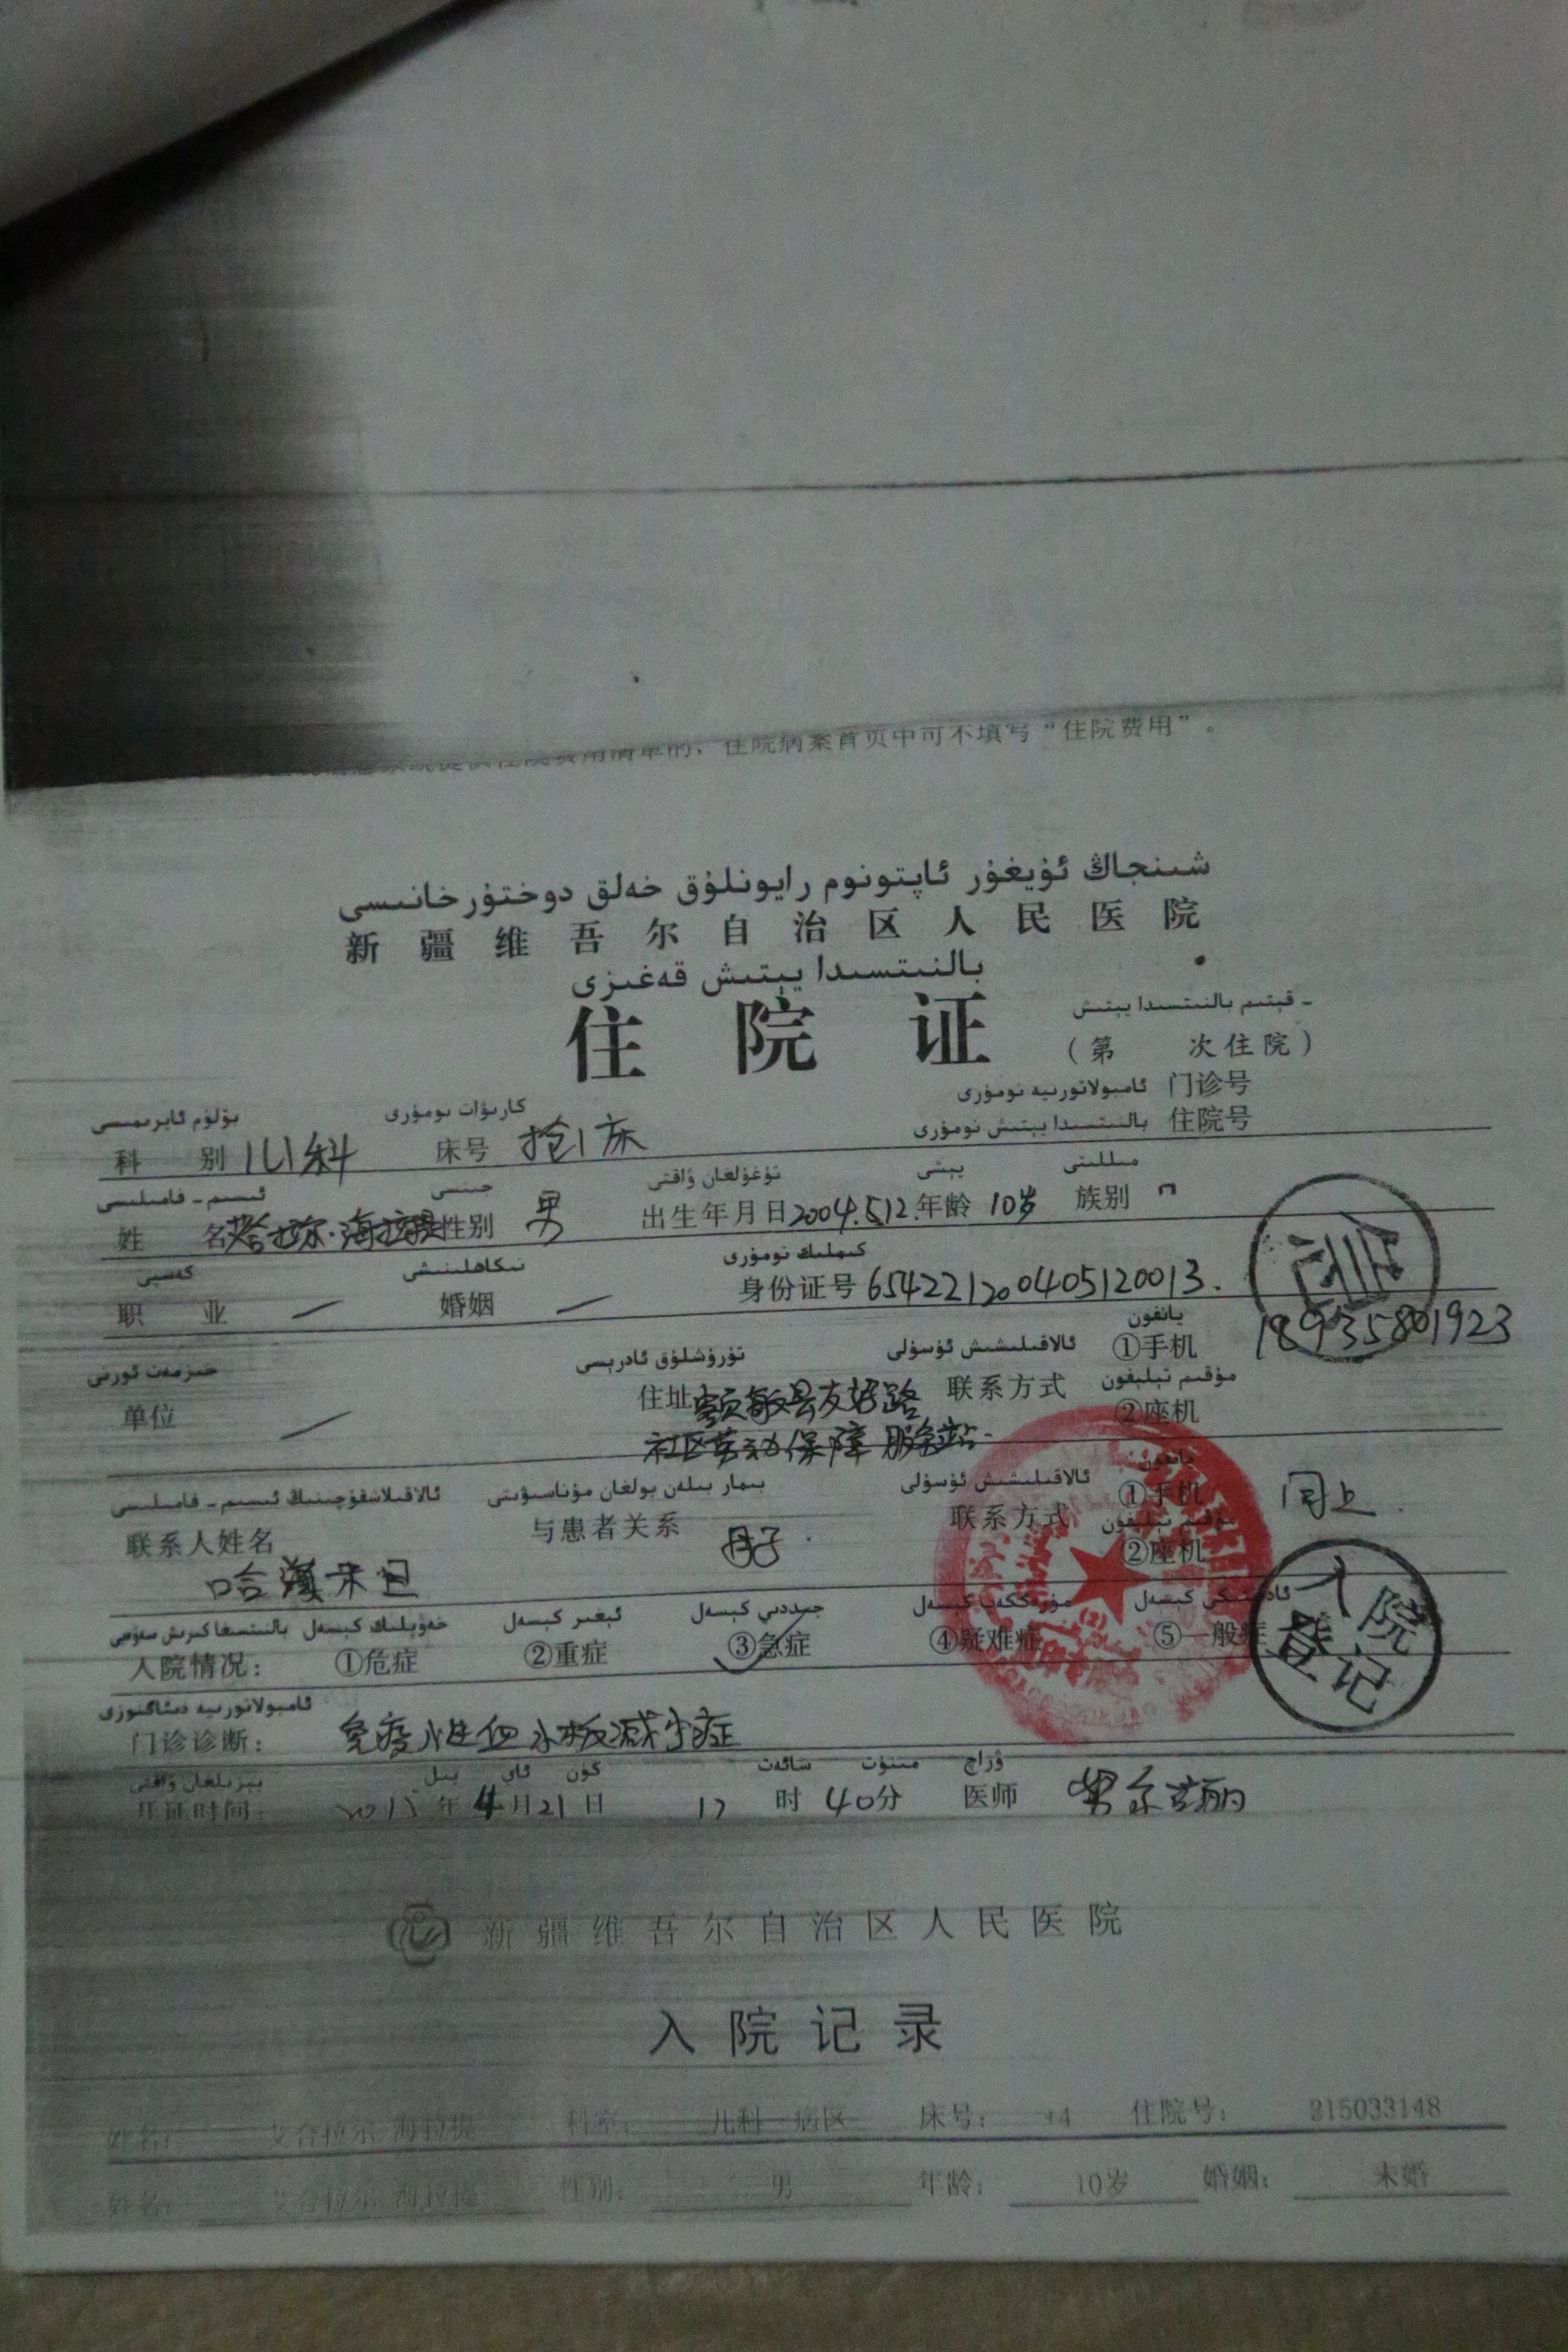 住院病案首页中可不填写“住院费用”。
شىنجاڭ ئۇيغۇر ئاپتونوم رايونلۇق خەلق دوختۇرخانىسى
新疆维吾尔自治区人民医院
بالنىتسىدا يېتىش قەغىزى
住院证
- قېتىم بالنىتسىدا يېتىش
（第 次住院）
ئامبولاتورىيە نومۇرى 门诊号
بۆلۈم ئايرىمىسى كارىۋات نومۇرى بالنىتسىدا يېتىش نومۇرى 住院号
科别 儿科 床号 抢1床
ئىسىم - فامىلىسى جىنسى تۇغۇلغان ۋاقتى يېشى مىللىتى
姓名 拉尔·海拉提 性别 男 出生年月日 2004.5.12. 年龄 10岁 族别
كەسپى نىكاھلىنىشى كىملىك نومۇرى
职业 — 婚姻 — 身份证号 654221200405120013.
خىزمەت ئورنى تۇرۇشلۇق ئادرېسى ئالاقىلىشىش ئۇسۇلى يانفون
①手机 18935801923
单位 — 住址 额敏县友好路 联系方式 مۇقىم تېلېفون
②座机
社区劳动保障服务站.
ئالاقىلاشقۇچىنىڭ ئىسىم - فامىلىسى بىمار بىلەن بولغان مۇناسىۋىتى ئالاقىلىشىش ئۇسۇلى يانفون
联系人姓名 与患者关系 母子. 联系方式 ①手机 同上.
مۇقىم تېلېفون
②座机
入院登记
بالنىتسىغا كىرىش سەۋەبى خەۋپلىك كېسەل ئېغىر كېسەل جىددىي كېسەل مۇرەككەپ كېسەل ئادەتتىكى كېسەل
入院情况： ①危症 ②重症 ③急症 ④疑难症 ⑤一般症
ئامبولاتورىيە دىئاگنوزى
门诊诊断： 免疫性血小板减少症
بېرىلگان ۋاقتى يىل ئاي كۈن سائەت مىنۇت ۋراچ
开证时间： 2015年4月21日 12时40分 医师
新疆维吾尔自治区人民医院
入院记录
姓名： 艾合拉尔 海拉提 科室： 儿科一病区 床号： 住院号： 215033148
姓名： 艾合拉尔 海拉提 性别： 男 年龄： 10岁 婚姻： 未婚